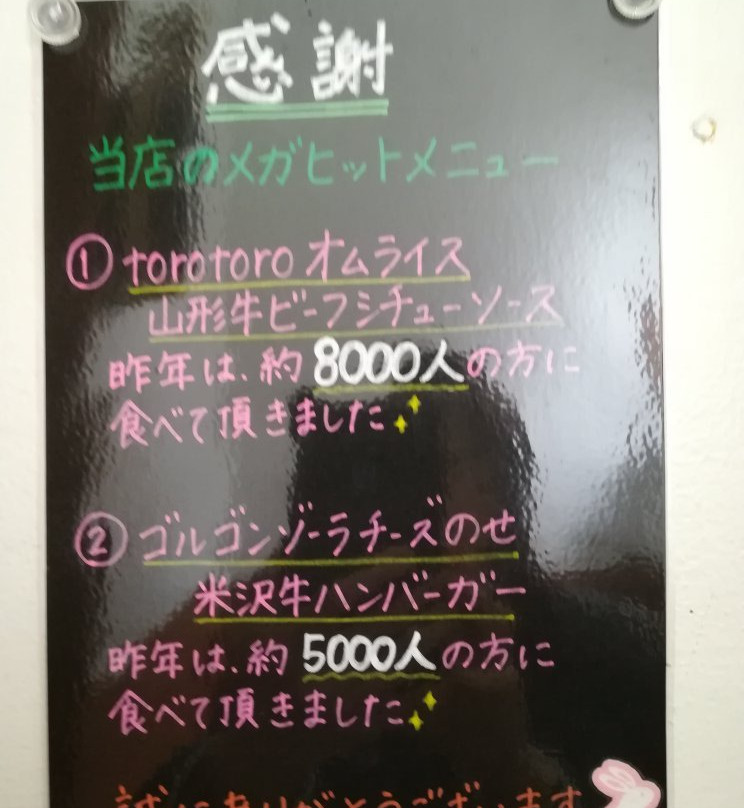 感謝
当店のメガヒットメニュー
① torotoroオムライス
山形牛ビーフシチューソース
昨年は、約8000人の方に
食べて頂きました
② ゴルゴンゾーラチーズのせ
米沢牛ハンバーガー
昨年は、約5000人の方に
食べて頂きました
誠にありがとうございます